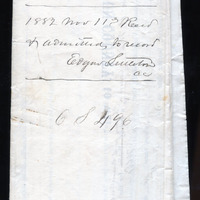 1882 Nov 11th Recd
& admitted to record
Edgar Littleton
DC
68496